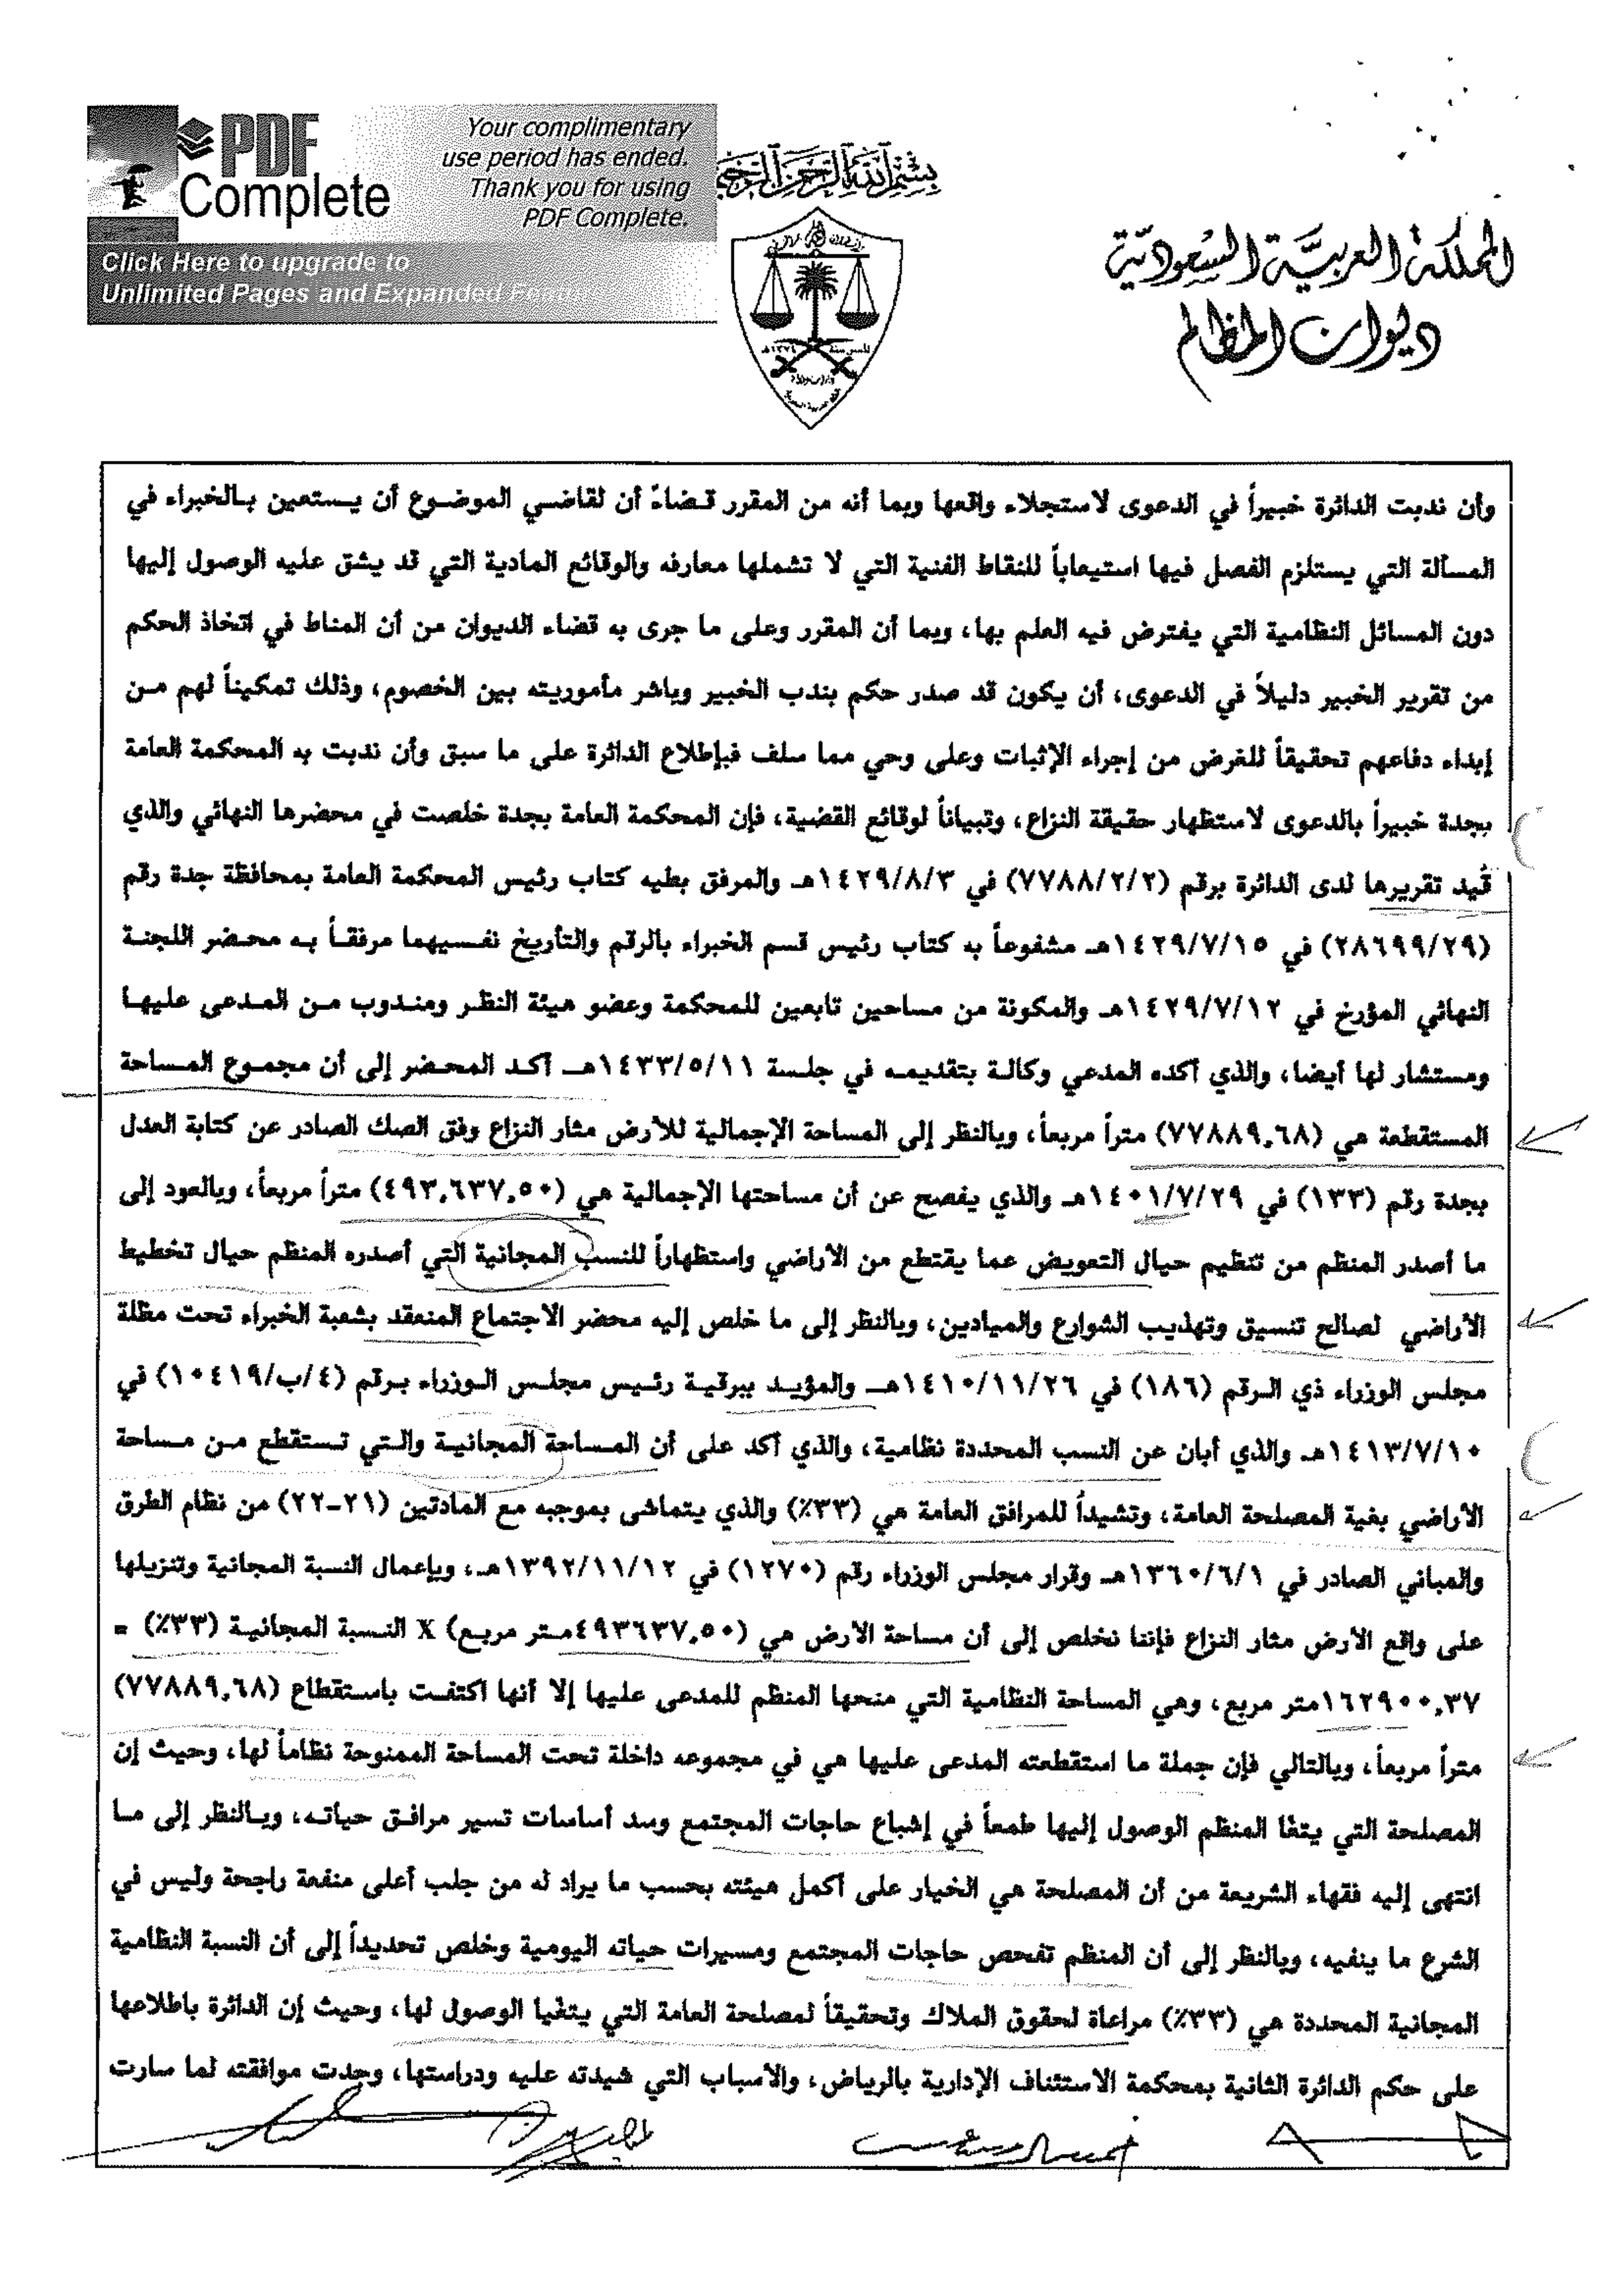 PDF Complete
Your complimentary
use period has ended.
Thank you for using
PDF Complete.
Click Here to upgrade to
Unlimited Pages and Expanded
بسم الله الرحمن الرحيم
المملكة العربية السعودية
ديوان المظالم
وأن ندبت الدائرة خبيراً في الدعوى لاستجلاء واقعها وبما أنه من المقرر قضاءً أن لقاضي الموضوع أن يستعين بالخبراء في
المسألة التي يستلزم الفصل فيها استيعاباً للنقاط الفنية التي لا تشملها معارفه والوقائع المادية التي قد يشق عليه الوصول إليها
دون المسائل النظامية التي يفترض فيه العلم بها، وبما أن المقرر وعلى ما جرى به قضاء الديوان من أن المناط في اتخاذ الحكم
من تقرير الخبير دليلاً في الدعوى، أن يكون قد صدر حكم بندب الخبير وباشر مأموريته بين الخصوم، وذلك تمكيناً لهم من
إبداء دفاعهم تحقيقاً للغرض من إجراء الإثبات وعلى وحي مما سلف فبإطلاع الدائرة على ما سبق وأن ندبت به المحكمة العامة
بجدة خبيراً بالدعوى لاستظهار حقيقة النزاع، وتبياناً لوقائع القضية، فإن المحكمة العامة بجدة خلصت في محضرها النهائي والذي
قُيد تقريرها لدى الدائرة برقم (٧٧٨٨/٢/٢) في ١٤٢٩/٨/٣هـ والمرفق بطيه كتاب رئيس المحكمة العامة بمحافظة جدة رقم
(٢٨٦٩٩/٢٩) في ١٤٢٩/٧/١٥هـ مشفوعاً به كتاب رئيس قسم الخبراء بالرقم والتأريخ نفسيهما مرفقاً به محضر اللجنة
النهائي المؤرخ في ١٤٢٩/٧/١٢هـ والمكونة من مساحين تابعين للمحكمة وعضو هيئة النظر ومندوب من المدعى عليها
ومستشار لها أيضا، والذي أكده المدعي وكالة بتقديمه في جلسة ١٤٣٣/٥/١١هـ أكد المحضر إلى أن مجموع المساحة
المستقطعة هي (٧٧٨٨٩,٦٨) متراً مربعاً، وبالنظر إلى المساحة الإجمالية للأرض مثار النزاع وفق الصك الصادر عن كتابة العدل
بجدة رقم (١٣٣) في ١٤٠١/٧/٢٩هـ والذي يفصح عن أن مساحتها الإجمالية هي (٤٩٣,٦٣٧,٥٠) متراً مربعاً، وبالعود إلى
ما أصدر المنظم من تنظيم حيال التعويض عما يقتطع من الأراضي واستظهاراً للنسب المجانية التي أصدره المنظم حيال تخطيط
الأراضي لصالح تنسيق وتهذيب الشوارع والميادين، وبالنظر إلى ما خلص إليه محضر الاجتماع المنعقد بشعبة الخبراء تحت مظلة
مجلس الوزراء ذي الرقم (١٨٦) في ١٤١٠/١١/٢٦هـ والمؤيد ببرقية رئيس مجلس الوزراء برقم (٤/ب/١٠٤١٩) في
١٤١٣/٧/١٠هـ والذي أبان عن النسب المحددة نظامية، والذي أكد على أن المساحة المجانية والتي تستقطع من مساحة
الأراضي بغية المصلحة العامة، وتشيداً للمرافق العامة هي (٣٣٪) والذي يتماشى بموجبه مع المادتين (٢١-٢٢) من نظام الطرق
والمباني الصادر في ١٣٦٠/٦/١هـ وقرار مجلس الوزراء رقم (١٢٧٠) في ١٣٩٢/١١/١٢هـ، وبإعمال النسبة المجانية وتنزيلها
على واقع الأرض مثار النزاع فإننا نخلص إلى أن مساحة الأرض هي (٤٩٣٦٣٧,٥٠متر مربع) X النسبة المجانية (٣٣٪) =
١٦٢٩٠٠,٣٧متر مربع، وهي المساحة النظامية التي منحها المنظم للمدعى عليها إلا أنها اكتفت باستقطاع (٧٧٨٨٩,٦٨)
متراً مربعاً، وبالتالي فإن جملة ما استقطعته المدعى عليها هي في مجموعه داخلة تحت المساحة الممنوحة نظاماً لها، وحيث إن
المصلحة التي يتغا المنظم الوصول إليها طمعاً في إشباع حاجات المجتمع وسد أساسات تسير مرافق حياته، وبالنظر إلى ما
انتهى إليه فقهاء الشريعة من أن المصلحة هي الخيار على أكمل هيئته بحسب ما يراد له من جلب أعلى منفعة راجحة وليس في
الشرع ما ينفيه، وبالنظر إلى أن المنظم تفحص حاجات المجتمع ومسيرات حياته اليومية وخلص تحديداً إلى أن النسبة النظامية
المجانية المحددة هي (٣٣٪) مراعاة لحقوق الملاك وتحقيقاً لمصلحة العامة التي يتغيا الوصول لها، وحيث إن الدائرة باطلاعها
على حكم الدائرة الثانية بمحكمة الاستئناف الإدارية بالرياض، والأسباب التي شيدته عليه ودراستها، وجدت موافقته لما سارت